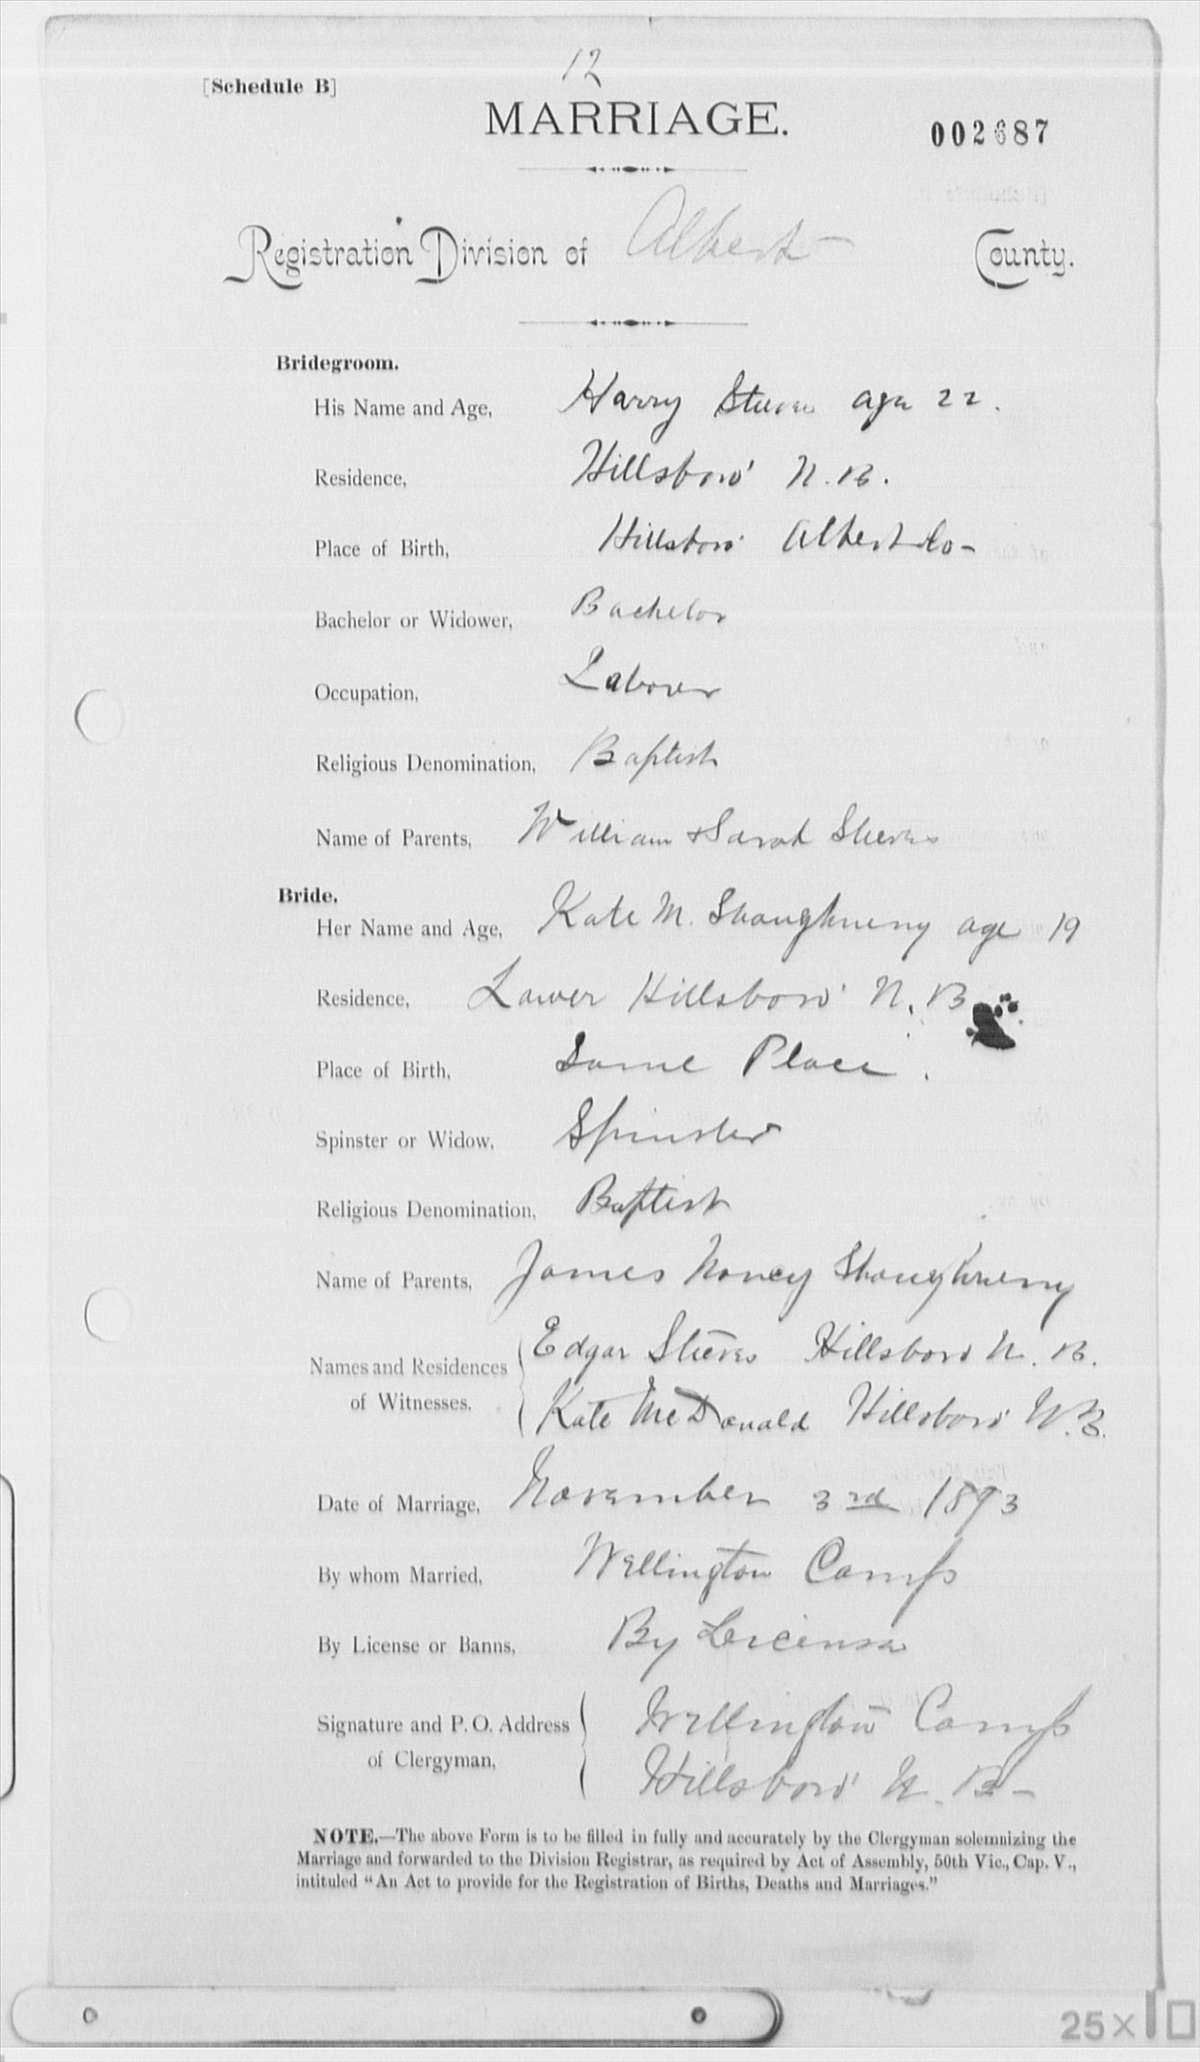 12
[Schedule B]
MARRIAGE.
002687
Registration Division of Albert County.
Bridegroom.
His Name and Age, Harry Steeves age 22.
Residence, Hillsboro' N.B.
Place of Birth, Hillsboro' Albert Co-
Bachelor or Widower, Bachelor
Occupation, Laborer
Religious Denomination, Baptist
Name of Parents, William & Sarah Steeves
Bride.
Her Name and Age, Kate M. Shaughnessy age 19
Residence, Lower Hillsboro' N.B
Place of Birth, Same Place.
Spinster or Widow, Spinster
Religious Denomination, Baptist
Name of Parents, James Nancy Shaughnessy
Names and Residences Edgar Steeves Hillsboro N.B.
of Witnesses. Kate McDonald Hillsboro' N.B.
Date of Marriage, November 3rd 1893
By whom Married, Wellington Camp
By License or Banns, By Licensa
Signature and P. O. Address Wellington Camp
of Clergyman, Hillsboro' N.B-
NOTE.—The above Form is to be filled in fully and accurately by the Clergyman solemnizing the
Marriage and forwarded to the Division Registrar, as required by Act of Assembly, 50th Vic., Cap. V.,
intituled "An Act to provide for the Registration of Births, Deaths and Marriages."
25×